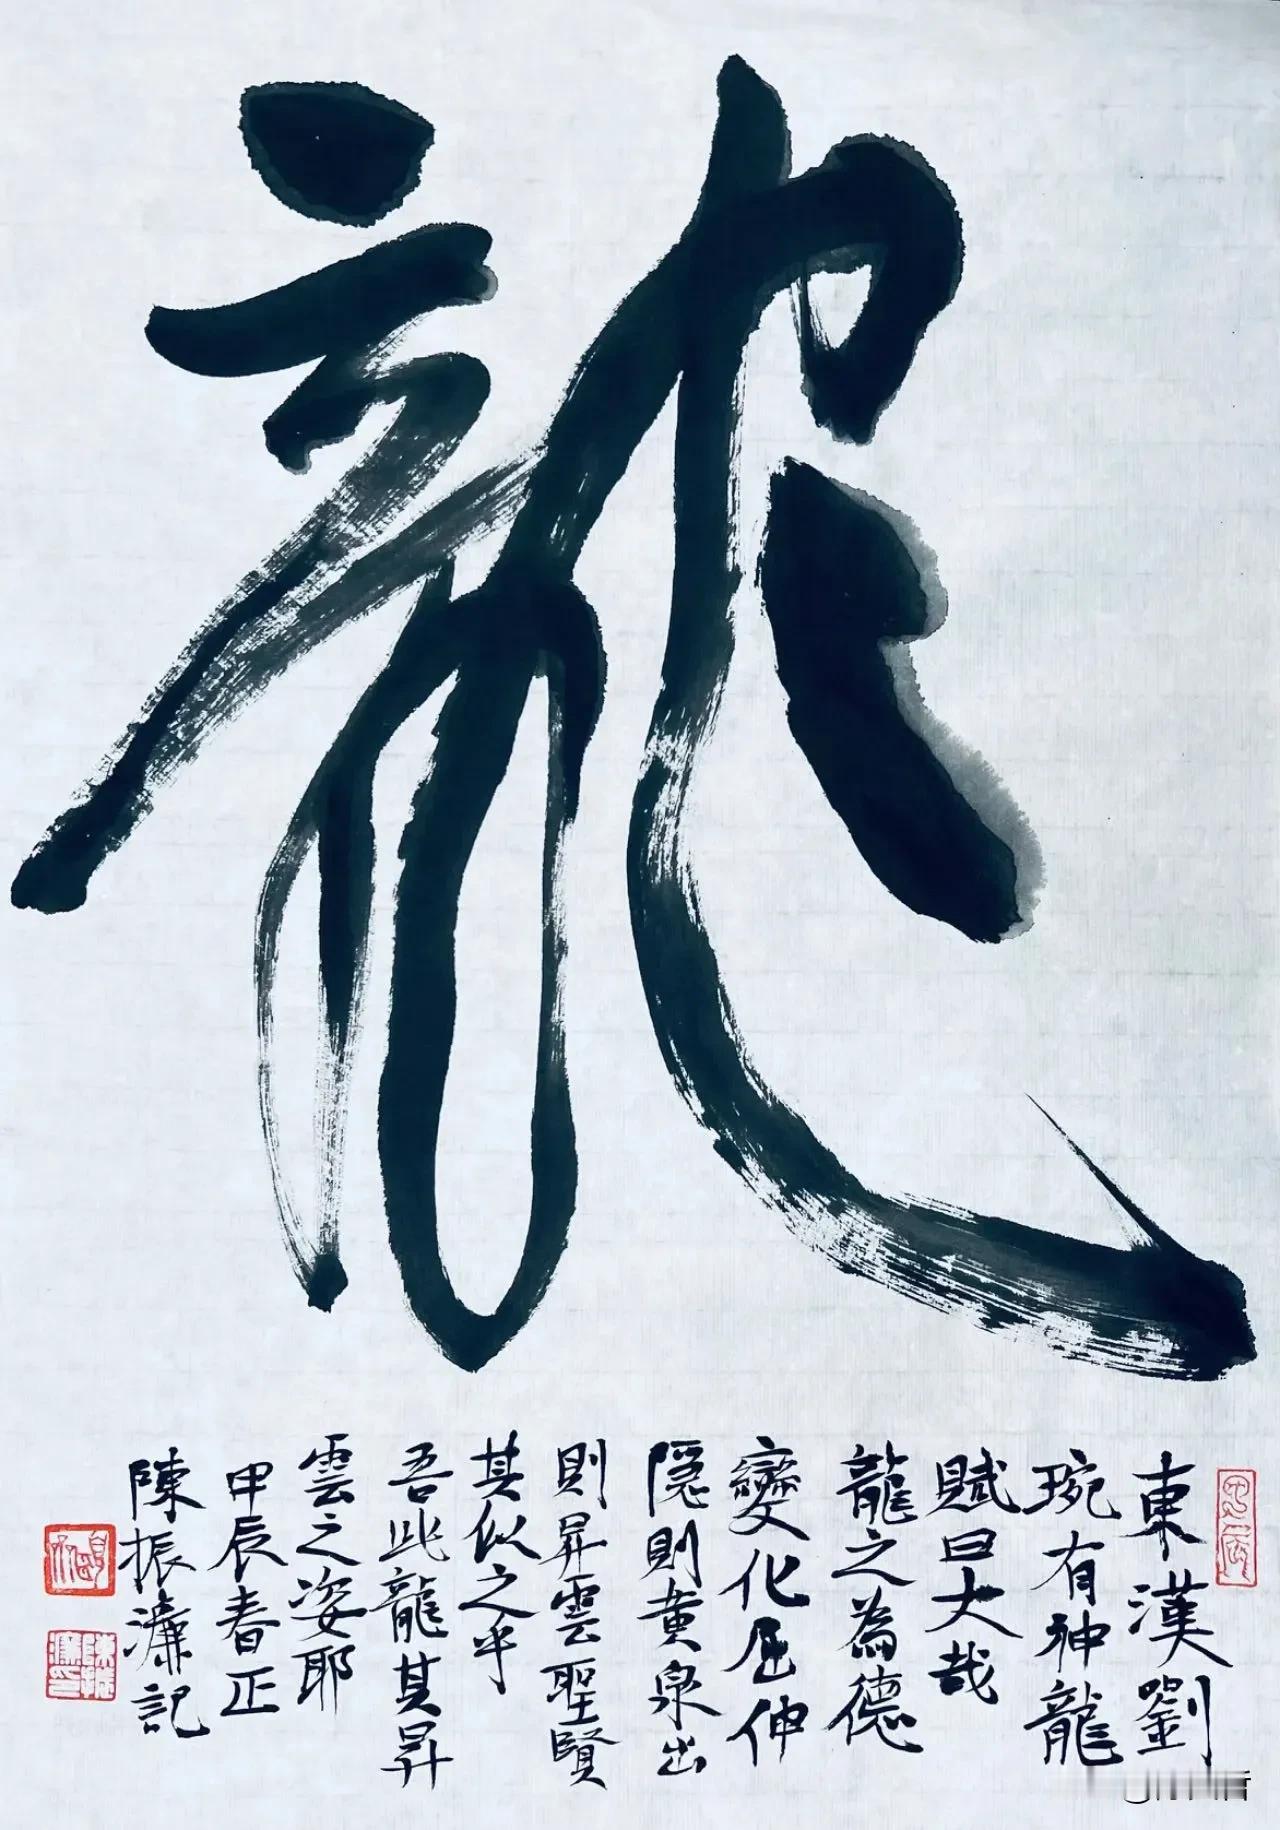 龍
東漢劉
琬有神龍
賦曰大哉
龍之為德
變化屈伸
隱則黃泉出
則昇雲聖賢
其似之乎
吾此龍其昇
雲之姿耶
甲辰春正
陳振濂記